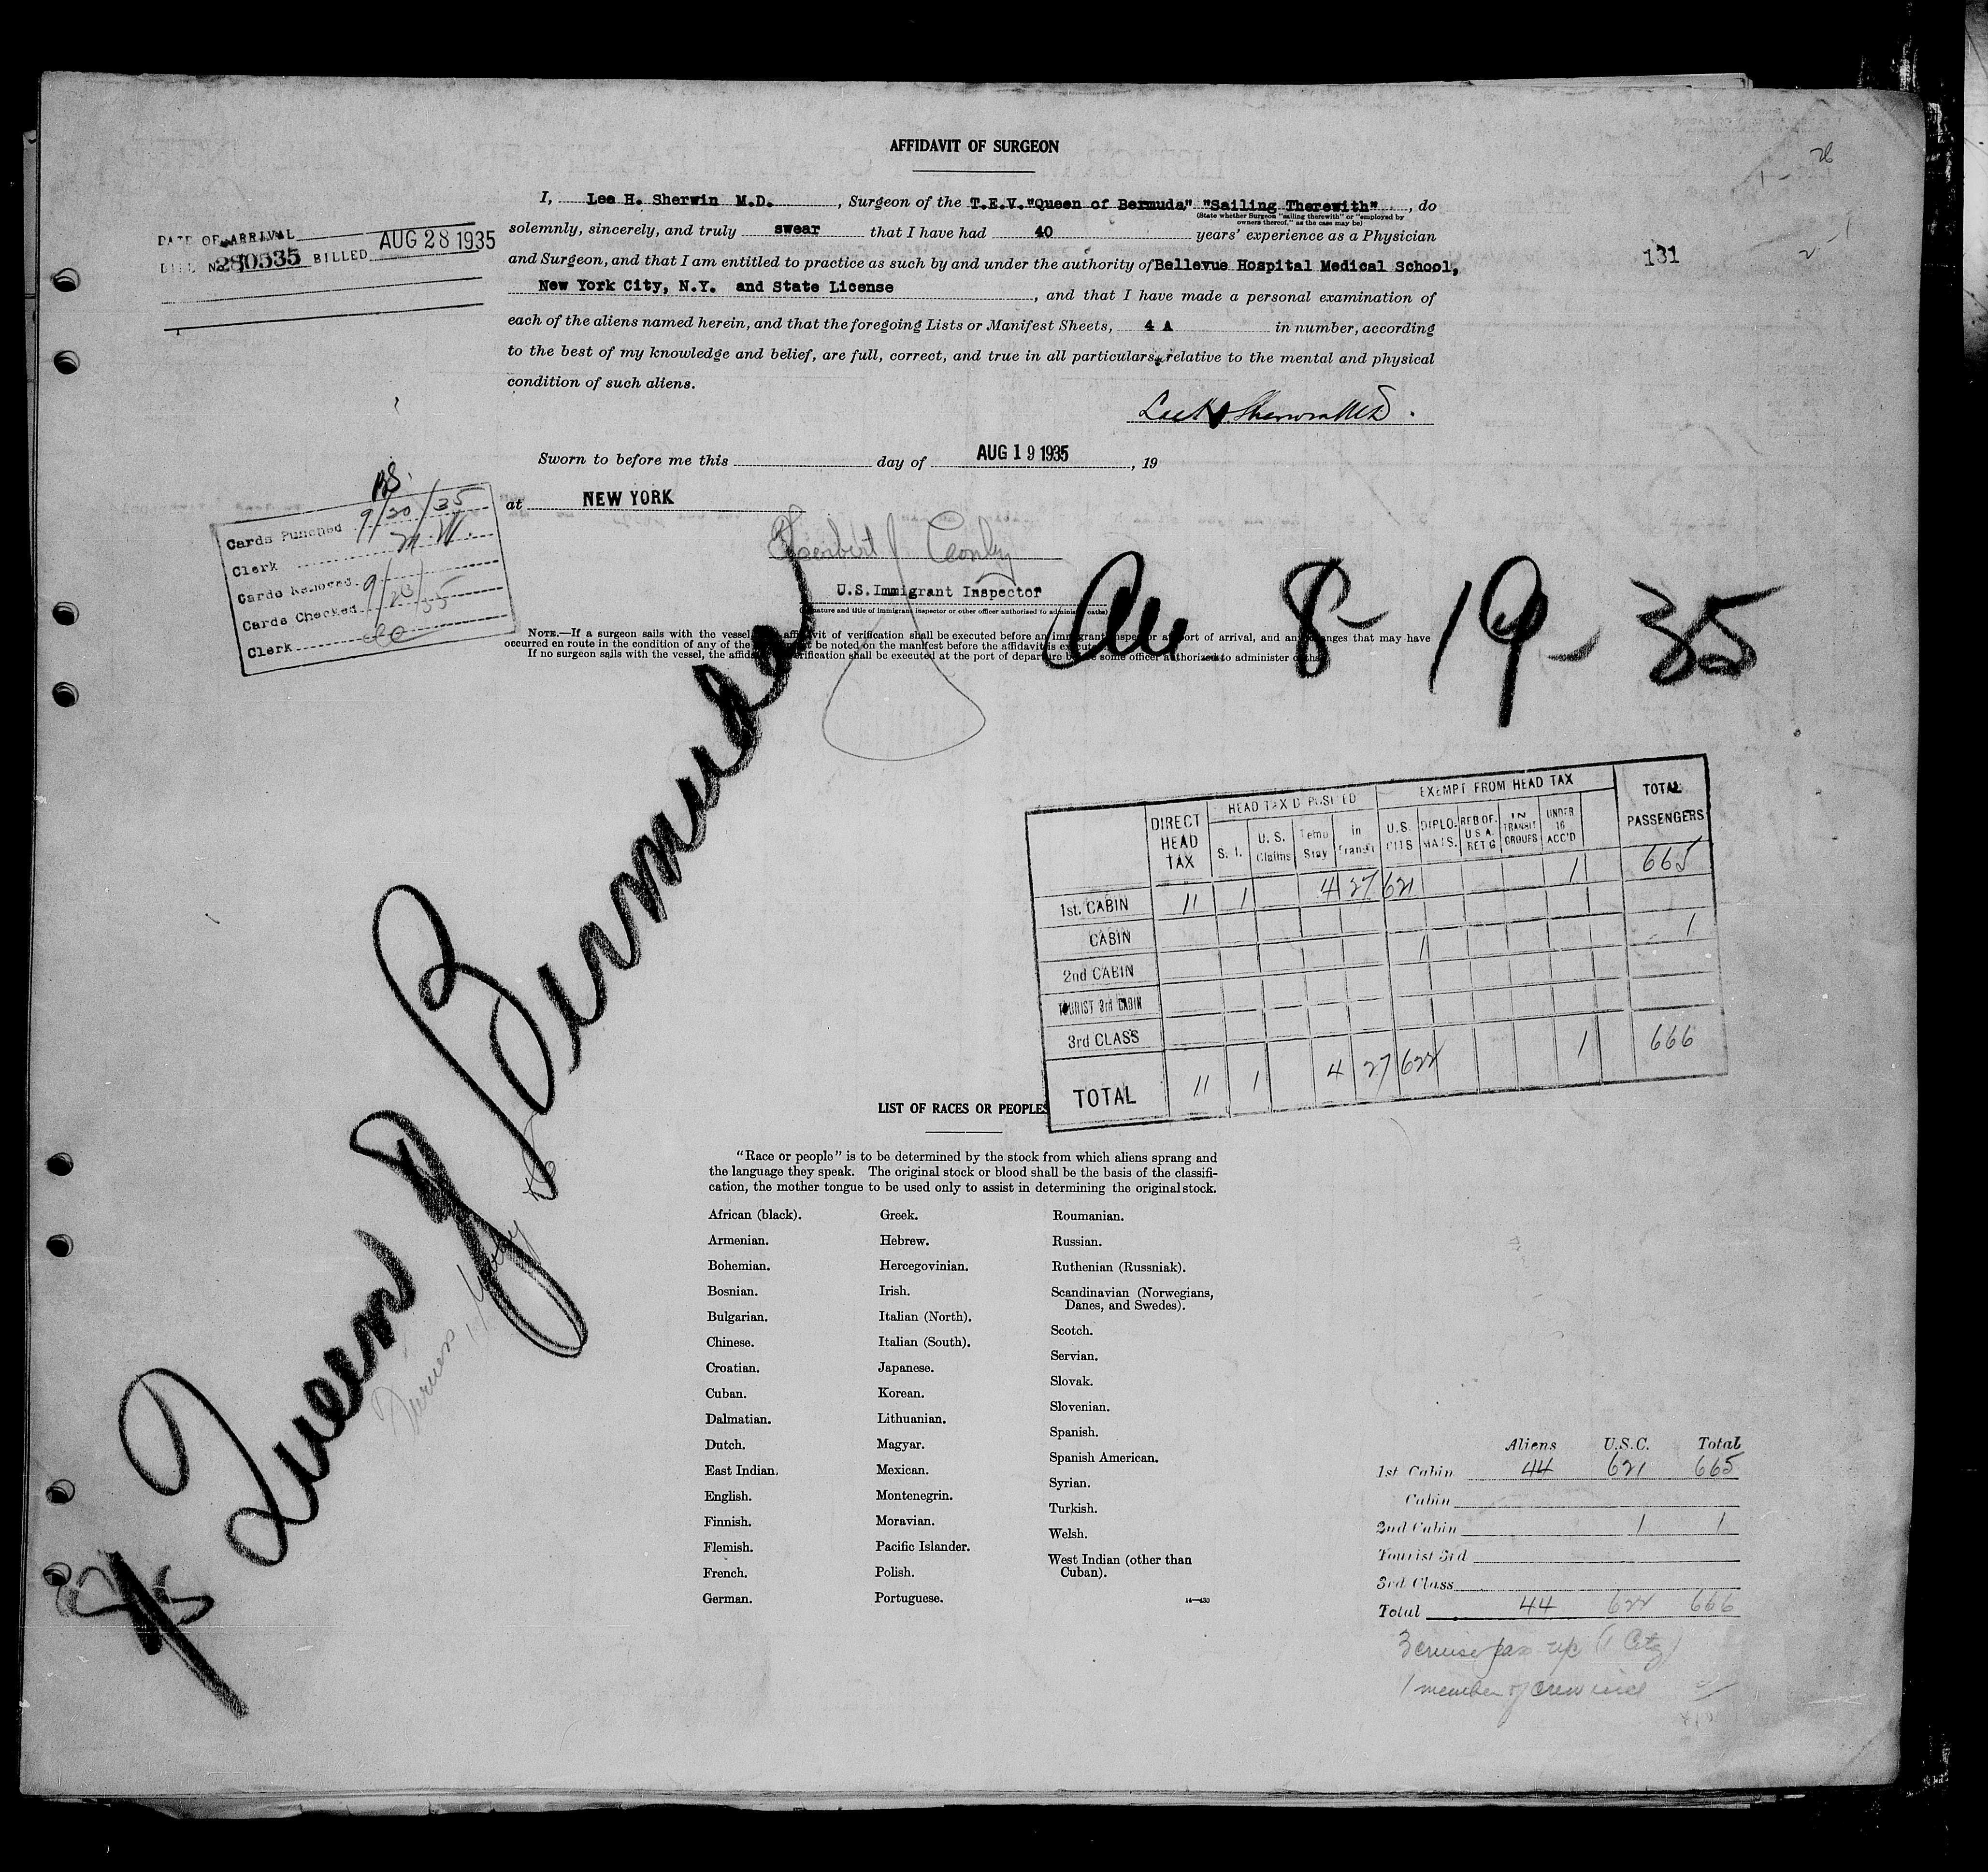 AFFIDAVIT OF SURGEON
I, Lee H. Sherwin M.D. , Surgeon of the T.E.V."Queen of Bermuda" "Sailing Therewith" , do
(State whether Surgeon "sailing therewith" or "employed by
owners thereof," as the case may be)
solemnly, sincerely, and truly swear that I have had 40 years' experience as a Physician
and Surgeon, and that I am entitled to practice as such by and under the authority of Bellevue Hospital Medical School,
New York City, N.Y. and State License , and that I have made a personal examination of
each of the aliens named herein, and that the foregoing Lists or Manifest Sheets, 4 A in number, according
to the best of my knowledge and belief, are full, correct, and true in all particulars, relative to the mental and physical
condition of such aliens.
DATE OF ARRIVAL
BILL No. 280535 BILLED AUG 28 1935
131
26
Sworn to before me this day of AUG 19 1935 , 19
at NEW YORK
Herbert J
U.S. Immigrant Inspector
(Signature and title of immigrant inspector or other officer authorized to administer oaths)
NOTE.—If a surgeon sails with the vessel, affidavit of verification shall be executed before an immigrant inspector at port of arrival, and any changes that may have
occurred en route in the condition of any of the be noted on the manifest before the affidavit is executed
If no surgeon sails with the vessel, the affidavit verification shall be executed at the port of departure before some officer authorized to administer oaths
Cards Punched 9/20/35
Clerk M.W.
Cards Removed
Cards Checked 9/23/35
Clerk
8-19-35
Queen of Bermuda
DIRECT HEAD TAX
HEAD TAX DEPOSITED
S. I.
U. S. Claims
Temp Stay
in Transit
EXEMPT FROM HEAD TAX
U.S. CITS
DIPLOMATS.
REB OF. U S A. RET G
IN TRANSIT GROUPS
UNDER 16 ACC'D
TOTAL PASSENGERS
1st. CABIN 11 1 4 27 621 1 665
CABIN
2nd CABIN 1 1
TOURIST 3rd CABIN
3rd CLASS
TOTAL 11 1 4 27 622 1 666
LIST OF RACES OR PEOPLES
"Race or people" is to be determined by the stock from which aliens sprang and
the language they speak. The original stock or blood shall be the basis of the classifi-
cation, the mother tongue to be used only to assist in determining the original stock.
African (black).
Armenian.
Bohemian.
Bosnian.
Bulgarian.
Chinese.
Croatian.
Cuban.
Dalmatian.
Dutch.
East Indian.
English.
Finnish.
Flemish.
French.
German.
Greek.
Hebrew.
Hercegovinian.
Irish.
Italian (North).
Italian (South).
Japanese.
Korean.
Lithuanian.
Magyar.
Mexican.
Montenegrin.
Moravian.
Pacific Islander.
Polish.
Portuguese.
Roumanian.
Russian.
Ruthenian (Russniak).
Scandinavian (Norwegians,
Danes, and Swedes).
Scotch.
Servian.
Slovak.
Slovenian.
Spanish.
Spanish American.
Syrian.
Turkish.
Welsh.
West Indian (other than
Cuban).
14—430
Aliens U.S.C. Total
1st Cabin 44 621 665
Cabin
2nd Cabin 1 1
Tourist 3rd
3rd Class
Total 44 622 666
1 member of crew